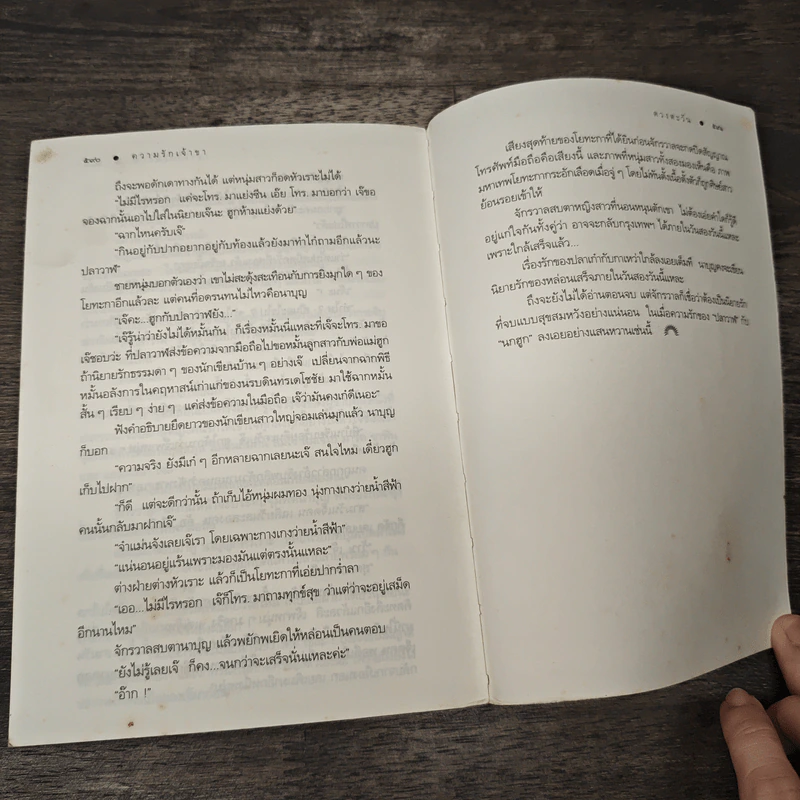 ๕๗๐ ● ความรักเจ้าขา
ถึงจะพอดักเดาทางกันได้ แต่หนุ่มสาวก็อดหัวเราะไม่ได้
“ไม่มีไรหรอก แค่จะโทร. มาแย่งซีน เอ๊ย โทร. มาบอกว่า เจ๊ขอ
จองฉากนั้นเอาไปใส่ในนิยายเจ๊นะ ฮูกห้ามแย่งด้วย”
“ฉากไหนครับเจ๊”
“กินอยู่กับปากอยากอยู่กับท้องแล้วยังมาทำไก๋ถามอีกแล้วนะ
ปลาวาฬ”
ชายหนุ่มบอกตัวเองว่า เขาไม่สะดุ้งสะเทือนกับการยิงมุกใด ๆ ของ
โยทะกาอีกแล้วละ แต่คนที่อดรนทนไม่ไหวคือนาบุญ
“เจ๊คะ...ฮูกกับปลาวาฬยัง...”
“เจ๊รู้น่าว่ายังไม่ได้หมั้นกัน ก็เรื่องหมั้นนี่แหละที่เจ๊จะโทร. มาขอ
เจ๊ชอบว่ะ ที่ปลาวาฬส่งข้อความจากมือถือไปขอหมั้นลูกสาวกับพ่อแม่ฮูก
ถ้านิยายรักธรรมดา ๆ ของนักเขียนบ้าน ๆ อย่างเจ๊ เปลี่ยนจากฉากพิธี
หมั้นอลังการในคฤหาสน์เก่าแก่ของนรบดินทรเดโชชัย มาใช้ฉากหมั้น
สั้น ๆ เรียบ ๆ ง่าย ๆ แค่ส่งข้อความในมือถือ เจ๊ว่ามันคงเก๋ดีเนอะ”
ฟังคำอธิบายยืดยาวของนักเขียนสาวใหญ่จอมเล่นมุกแล้ว นาบุญ
ก็บอก
“ความจริง ยังมีเก๋ ๆ อีกหลายฉากเลยนะเจ๊ สนใจไหม เดี๋ยวฮูก
เก็บไปฝาก”
“ก็ดี แต่จะดีกว่านั้น ถ้าเก็บไอ้หนุ่มผมทอง นุ่งกางเกงว่ายน้ำสีฟ้า
คนนั้นกลับมาฝากเจ๊”
“จำแม่นจังเลยเจ๊เรา โดยเฉพาะกางเกงว่ายน้ำสีฟ้า”
“แน่นอนอยู่แร้นเพราะมองมันแต่ตรงนั้นแหละ”
ต่างฝ่ายต่างหัวเราะ แล้วก็เป็นโยทะกาที่เอ่ยปากร่ำลา
“เออ...ไม่มีไรหรอก เจ๊ก็โทร. มาถามทุกข์สุข ว่าแต่ว่าจะอยู่เสม็ด
อีกนานไหม”
จักรวาลสบตานาบุญ แล้วพยักพเยิดให้หล่อนเป็นคนตอบ
“ยังไม่รู้เลยเจ๊ ก็คง...จนกว่าจะเสร็จนั่นแหละค่ะ”
“อ๊าก !”
ดวงตะวัน ● ๕๗๑
เสียงสุดท้ายของโยทะกาที่ได้ยินก่อนจักรวาลจะกดปิดสัญญาณ
โทรศัพท์มือถือคือเสียงนี้ และภาพที่หนุ่มสาวทั้งสองมองเห็นคือ ภาพ
มหาเทพโยทะกากระอักเลือดเมื่อจู่ ๆ โดยไม่ทันตั้งเนื้อตั้งตัวก็ถูกศิษย์สาว
ย้อนรอยเข้าให้
จักรวาลสบตาหญิงสาวที่นอนหนุนตักเขา ไม่ต้องเอ่ยคำใดก็รู้ดี
อยู่แก่ใจกันทั้งคู่ว่า อาจจะกลับกรุงเทพฯ ได้ภายในวันสองวันนี้แหละ
เพราะใกล้เสร็จแล้ว...
เรื่องรักของปลาเก๋ากับกาเหว่าใกล้ลงเอยเต็มที นาบุญคงจะเขียน
นิยายรักของหล่อนเสร็จภายในวันสองวันนี้แหละ
ถึงจะยังไม่ได้อ่านตอนจบ แต่จักรวาลก็เชื่อว่าต้องเป็นนิยายรัก
ที่จบแบบสุขสมหวังอย่างแน่นอน ในเมื่อความรักของ “ปลาวาฬ” กับ
“นกฮูก” ลงเอยอย่างแสนหวานเช่นนี้